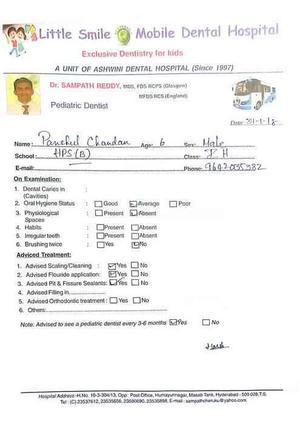 Little Smile Mobile Dental Hospital
Exclusive Dentistry for kids
A UNIT OF ASHWINI DENTAL HOSPITAL (Since 1997)
Dr. SAMPATH REDDY, MDS, FDS RCPS (Glasgow)
MFDS RCS (England)
Pediatric Dentist
Date: 31-1-18
Name: Chandan Age: 6 Sex: Male
School: HPS (B) Class: I H
E-mail: Phone:
On Examination:
1. Dental Caries in :
(Cavities)
2. Oral Hygiene Status : Good Average Poor
3. Physiological : Present Absent
Spaces
4. Habits : Present Absent
5. Irregular teeth : Present Absent
6. Brushing twice : Yes No
Adviced Treatment:
1. Advised Scaling/Cleaning : Yes No
2. Advised Flouride application: Yes No
3. Advised Pit & Fissure Sealants: Yes No
4. Advised Filling in
5. Advised Orthodontic treatment : Yes No
6. Others:
Note: Advised to see a pediatric dentist every 3-6 months Yes No
Hospital Address: H.No. 10-3-304/13, Opp: Post Office, Humayunnagar, Masab Tank, Hyderabad - 500 028 T.S.
Tel : (C) 23537612, 23535656, 23590690, 23535898, E-mail -